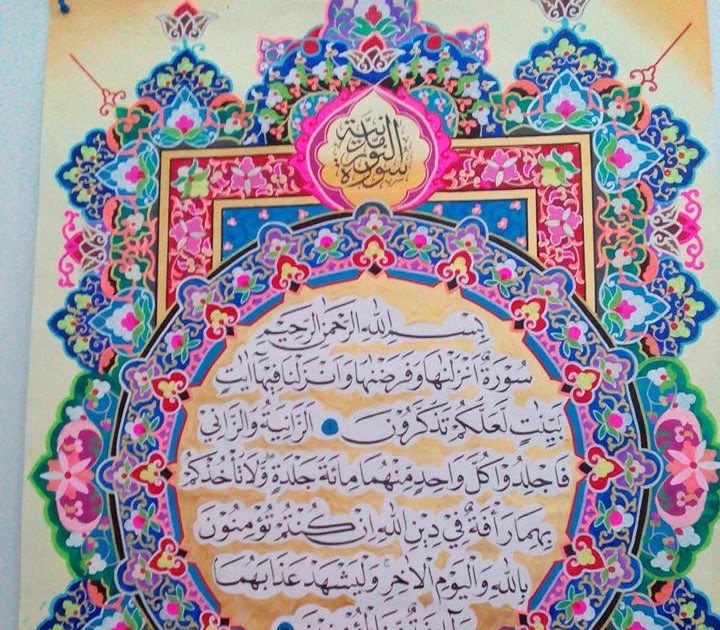 سورة النور مدنية
بِسْمِ اللهِ الرَّحْمٰنِ الرَّحِيْمِ
سُوْرَةٌ اَنْزَلْنٰهَا وَفَرَضْنٰهَا وَاَنْزَلْنَا فِيْهَآ اٰيٰتٍ
بَيِّنٰتٍ لَعَلَّكُمْ تَذَكَّرُوْنَ الزَّانِيَةُ وَالزَّانِيْ
فَاجْلِدُوْا كُلَّ وَاحِدٍ مِنْهُمَا مِائَةَ جَلْدَةٍ وَّلَا تَأْخُذْكُمْ
بِهِمَا رَأْفَةٌ فِيْ دِيْنِ اللهِ اِنْ كُنْتُمْ تُؤْمِنُوْنَ
بِاللهِ وَالْيَوْمِ الْاٰخِرِ وَلْيَشْهَدْ عَذَابَهُمَا